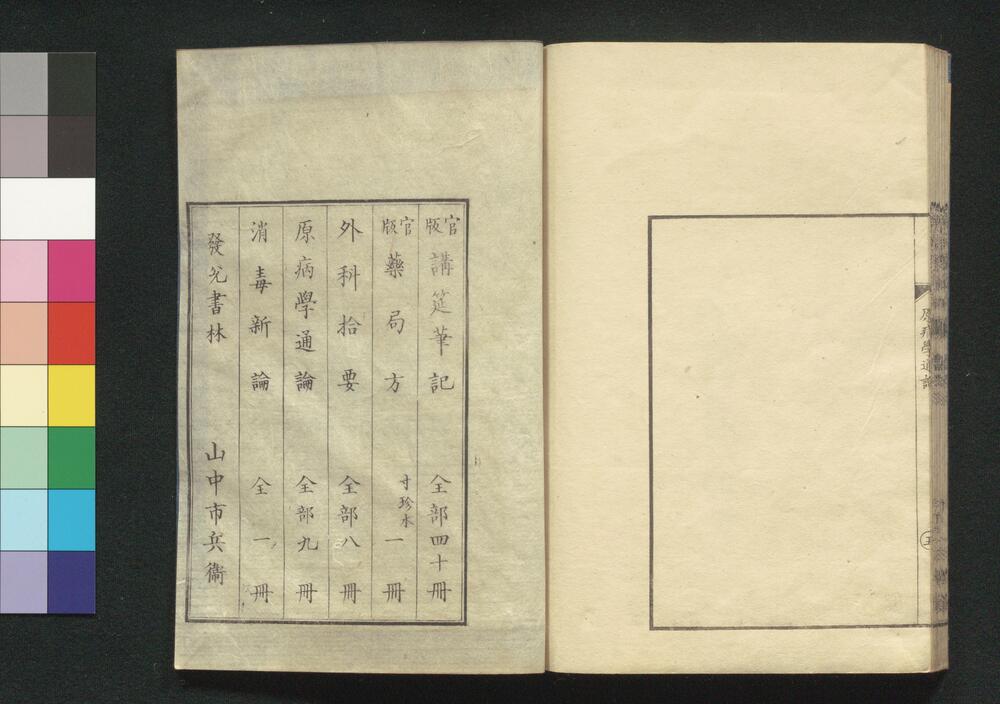 原病學通論
五
官版 講筵筆記 全部四十冊
官版 藥局方 寸珍本一冊
外科拾要 全部八冊
原病學通論 全部九冊
消毒新論 全一冊
發兌書林 山中市兵衞